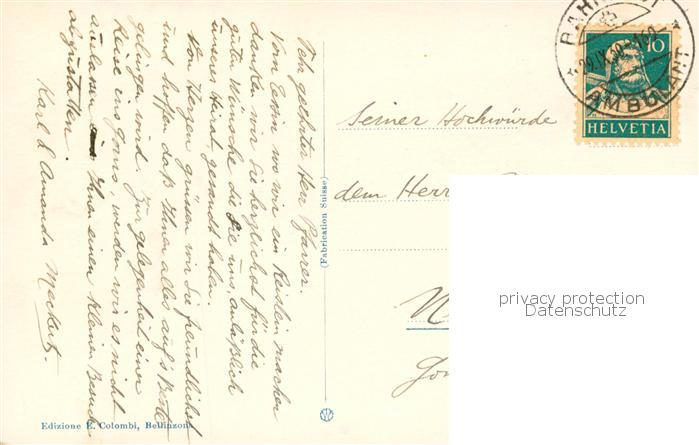 Sehr geehrter Herr Pfarrer.
Vom Tessin wo wir ein Reislein machen
danken wir Sie herzlichst für die
guten Wünsche die Sie uns, anläßlich
unserer Heirat, gesandt haben.
Von Herzen grüssen wir Sie freundlichst
und hoffen daß Ihnen alles auf's Beste
gelingen wird. Zur Gelegenheit einer
Reise ins werden wir es nicht
Ihnen einen kleinen Besuch
abzustatten.
Karl & Amanda
Edizione E. Colombi, Bellinzona
(Fabrication Suisse)
Seiner Hochwürde
dem Herrn
BAHNPOST
29.IX.
AMBULANT
10
HELVETIA
privacy protection
Datenschutz